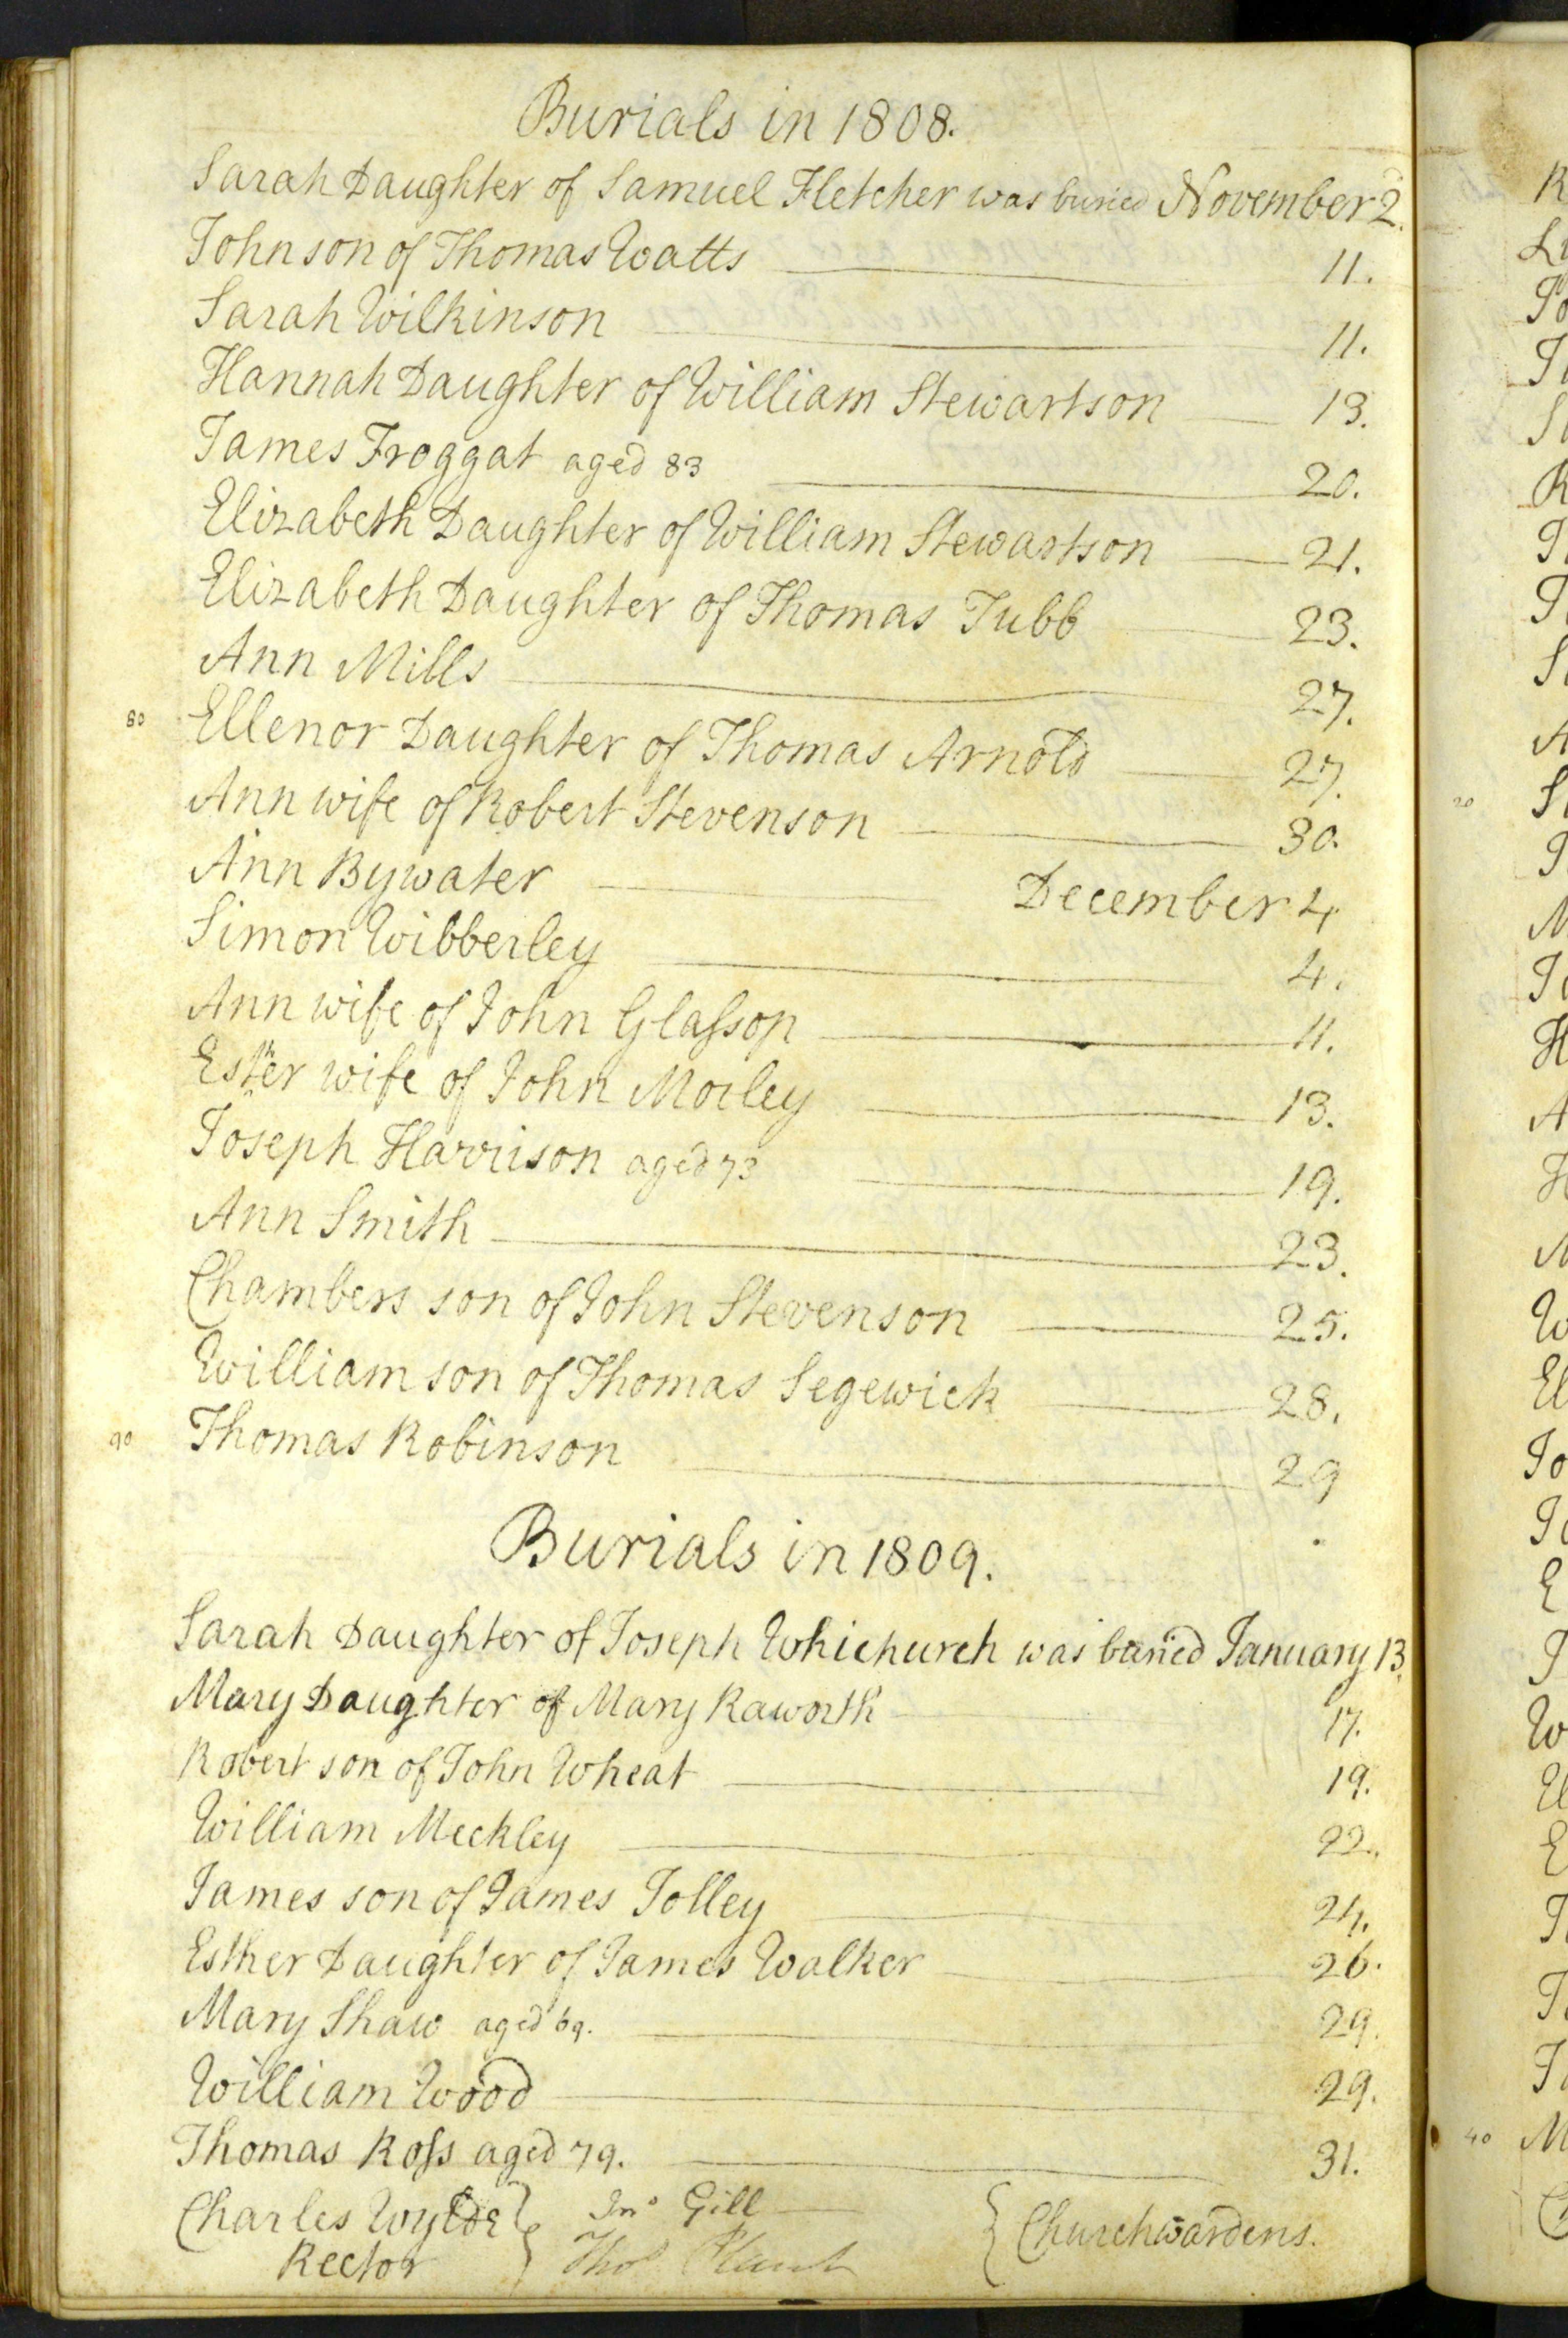 Burials in 1808.
Sarah Daughter of Samuel Fletcher was buried November 2.
John son of Thomas Watts 11.
Sarah Wilkinson 11.
Hannah Daughter of William Stewartson 13.
James Froggat aged 83 20.
Elizabeth Daughter of William Stewartson 21.
Elizabeth Daughter of Thomas Tubb 23.
Ann Mills 27.
80 Ellenor Daughter of Thomas Arnold 27.
Ann wife of Robert Stevenson 30.
Ann Bywater December 4
Simon Wibberley 4.
Ann wife of John Glaſsop 11.
Esther wife of John Morley 13.
Joseph Harrison aged 73 19.
Ann Smith 23.
Chambers son of John Stevenson 25.
William son of Thomas Segewick 28.
90 Thomas Robinson 29
Burials in 1809.
Sarah Daughter of Joseph Whichurch was buried January 13.
Mary Daughter of Mary Raworth 17.
Robert son of John Wheat 19.
William Meckley 22.
James son of James Tolley 24.
Esther Daughter of James Walker 26.
Mary Shaw aged 69. 29.
William Wood 29.
Thomas Roſs aged 79. 31.
Charles Wylde Jno Gill
Rector Thos Plant Churchwardens.
20
40